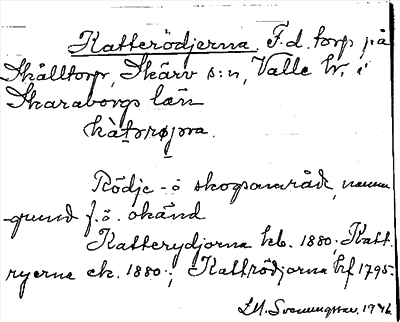 Katterödjorna F. d. torp på
Skålltorp, Skärv s:n, Valle hr. i
Skaraborgs län
kàtərøjʋa.
Rödje - ö skogsområde, namn
grund f. ö. okänd
Katterydjorna hb. 1880; Katt-
ryerna ek. 1880; Kattrödjorna hf 1795.
1946.